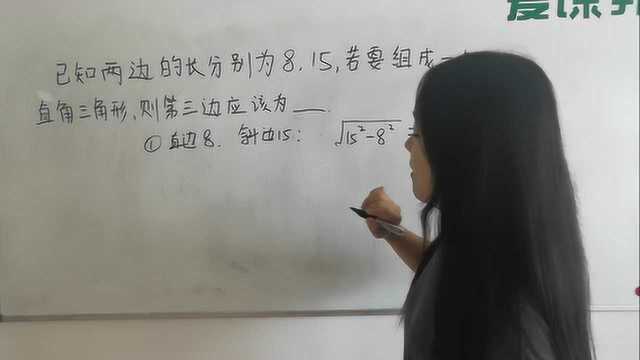 爱课
已知两边的长分别为8,15,若要组成一
直角三角形,则第三边应该为___.
①直边8. 斜边15: √15²-8² =